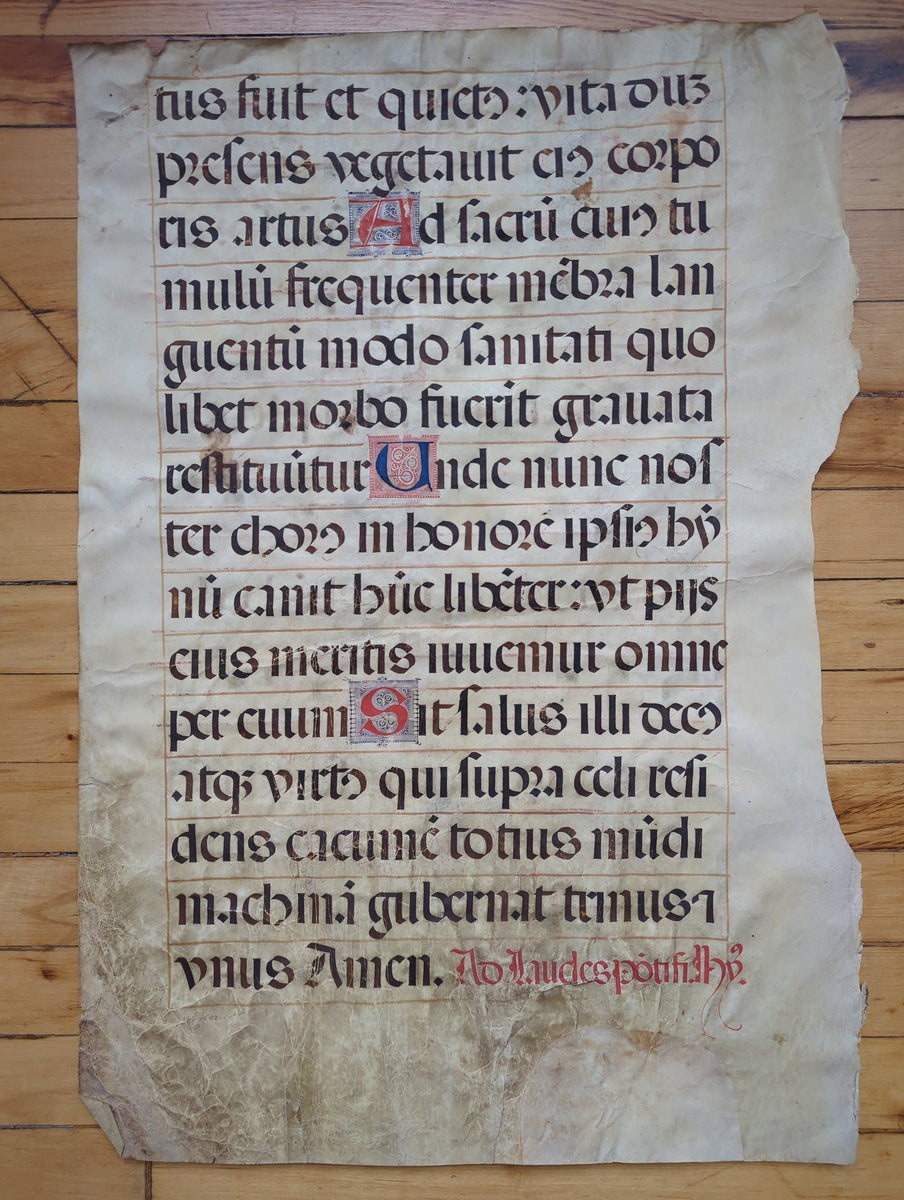 tus fuit et quietꝯ : vita duꝫ
presens vegetauit eiꝯ corpo
ris artus Ad sacrũ cuiꝯ tu
mulũ frequenter mẽbra lan
guentũ modo sanitati quo
libet morbo fuerit grauata
restituũtur Unde nunc nos
ter chorꝯ in honorẽ ipsiꝯ hỹ
nũ canit hũc libẽter : vt pijs
eius meritis iuuemur omne
per euum Sit salus illi decꝯ
atqꝫ virtꝯ qui supra celi resi
dens cacumẽ totius mũdi
machinã gubernat trinus ⁊
vnus Amen. Ad Laudes põtifi. Hyꝰ.